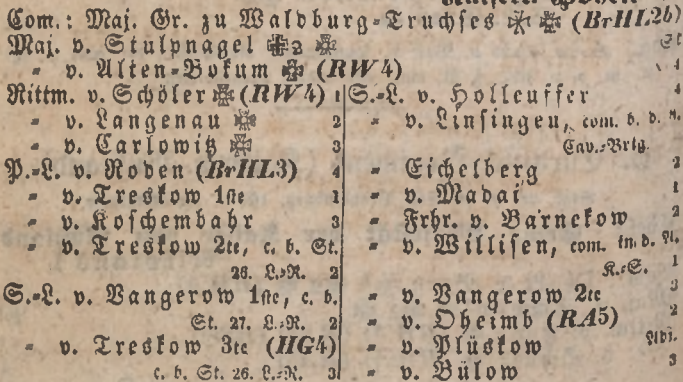 Com.: Maj. Gr. zu Waldburg-Truchses (BrHL2b)
Maj. v. Stulpnagel 2
- v. Alten-Bokum (RW4)
Rittm. v. Schöler (RW4) 1
- v. Langenau 2
- v. Carlowitz 3
P.-L. v. Roden (BrHL3) 4
- v. Treskow 1ste 1
- v. Koschembahr 3
- v. Treskow 2te, c. b. St.
26. L.-R. 2
S.-L. v. Vangerow 1ste, c. b.
St. 27. L.-R. 2
- v. Treskow 3te (HG4)
c. b. St. 26. L.-R. 3
S.-L. v. Holleuffer 4
- v. Linsingen, com. b. d. 4.
Cav.-Brig.
- Eichelberg 2
- v. Madai 1
- Frhr. v. Barnekow 2
- v. Willisen, com. in d. A.
K.-S. 1
- v. Vangerow 2te 3
- v. Oheimb (RA5) 2
- v. Plüskow Adj.
- v. Bülow 3